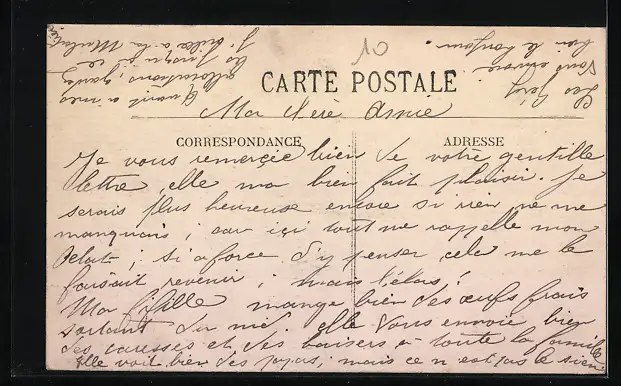 10
CARTE POSTALE
Ma chère Amie
CORRESPONDANCE
ADRESSE
Je vous remercie bien de votre gentille
lettre, elle ma bien fait plaisir. Je
serais plus heureuse encore si rien ne me
manquais ; car içi tout me rappelle mon
; si a force d'y penser cela me le
faisait revenir ; mais hélas !
Ma fifille mange bien des œufs frais
sortant du nid. elle vous envoie bien
des caresses et des baisers a toute la famille
elle voit bien des papas, mais ce n'est pas le sien.
Quant a mes
gardes
jusqu'a ce
Les
vous envoie
bien le bonjour.